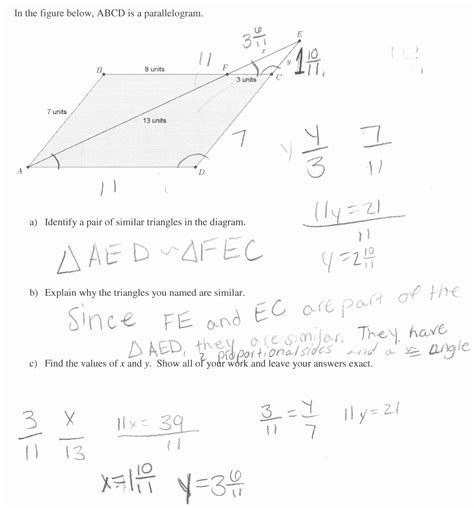 In the figure below, ABCD is a parallelogram.
3 6/11
E
11
x
y
1 10/11
B
8 units
F
3 units
C
7 units
13 units
7
y/3 7/11
A
11
D
11y = 21
11
y = 2 10/11
a) Identify a pair of similar triangles in the diagram.
△AED ~ △FEC
b) Explain why the triangles you named are similar.
Since FE and EC are part of the
△AED, they are similar. They have
2 proportional sides and a ≅ angle
c) Find the values of x and y. Show all of your work and leave your answers exact.
3/11 x/13 11x = 39
11
3/11 = y/7 11y = 21
x = 1 10/11 y = 3 6/11